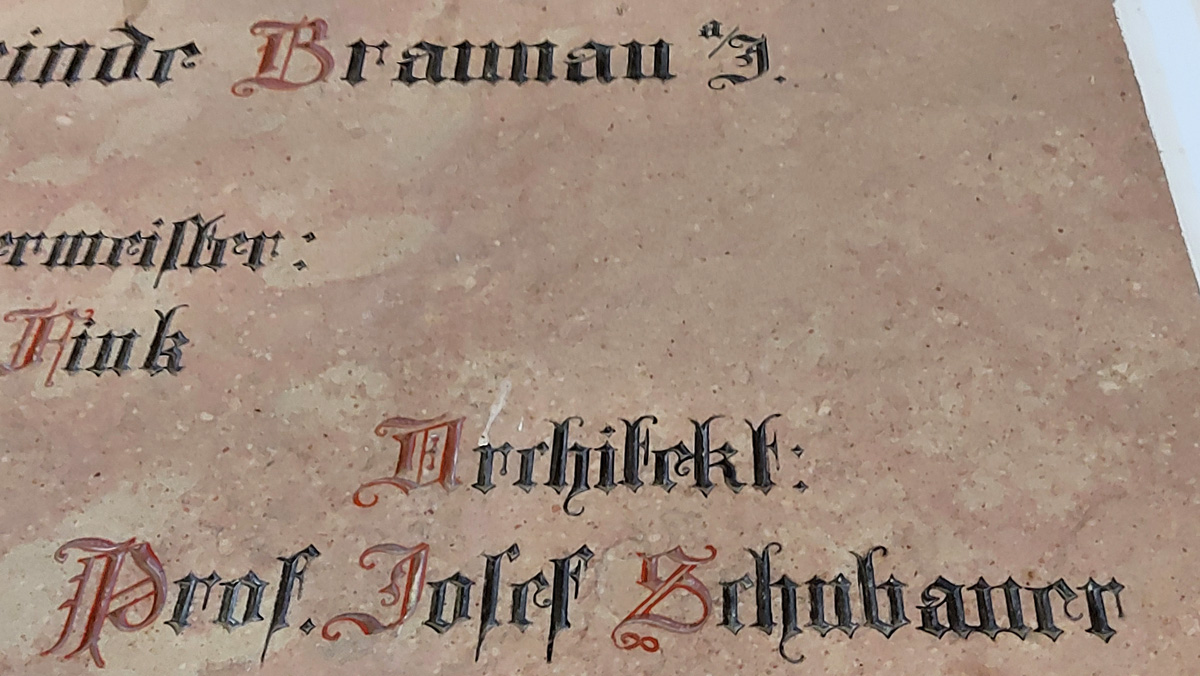 einde Braunau a/I.
ermeister:
Fink
Architekt:
Prof. Josef Schubauer